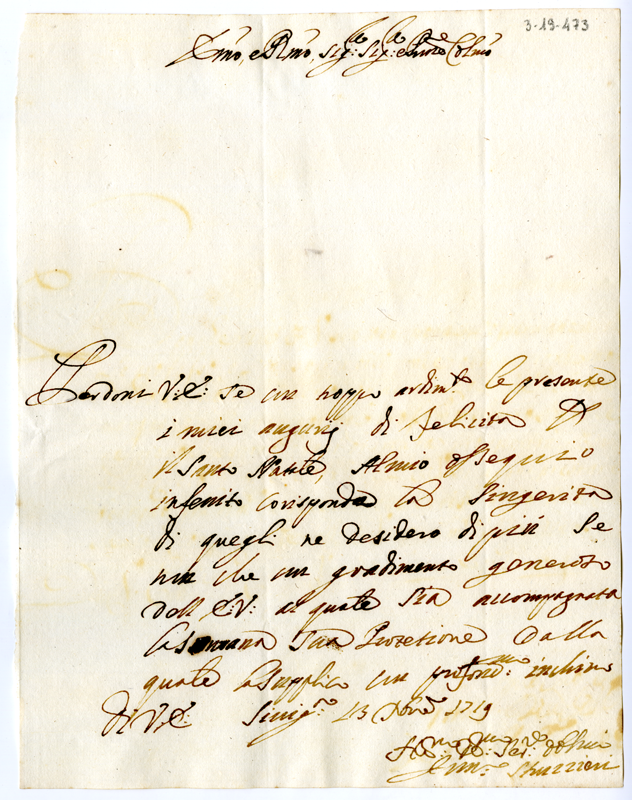 3-19-473
Emo, e Rmo, Sig.r Sig.r e Pne Colmo
Perdoni V: E: se con troppo ardim.to le presente
i miei augurij di felicità P
il Santo Natale, Al mio ossequio
infenito corisponde la Singerita
di quegli ne desidero di più Se
non che un gradimento generoso
dell E: V: al quale Sia accompagnata
la Sua Protetione dalla
quale la supplico con profond.mo inchino
Di V: E: Sinig.a 13 1719
Hu.mo Ser.e